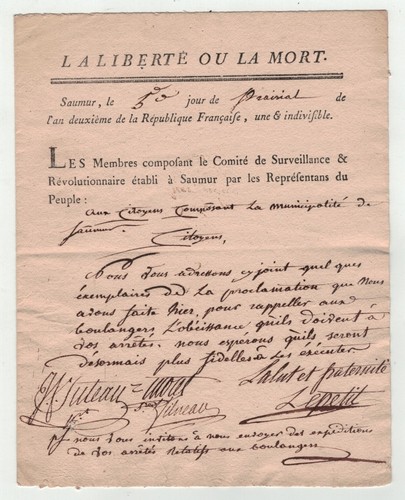 LA LIBERTÉ OU LA MORT.
Saumur, le 5.e jour de Prairial de
l'an deuxième de la République Française, une & indivisible.
LES Membres composant le Comité de Surveillance &
Révolutionnaire établi à Saumur par les Représentans du
Peuple :
aux Citoyens Composant La municipalité de
Saumur.
Citoyens,
Nous Vous adressons cy joint quel ques
éxemplaires de La proclamation que Nous
avons faite hier, pour rappeller aux
boulangers L'obeissance qu'ils doivent à
Vos arrêtés. nous espérons qu'ils seront
desormais plus fidelles à Les éxécuter
Salut et fraternité
Lepetit
nous Vous invitons à nous envoyer des expéditions
de Vos arrêtés Relatifs aux boulangers